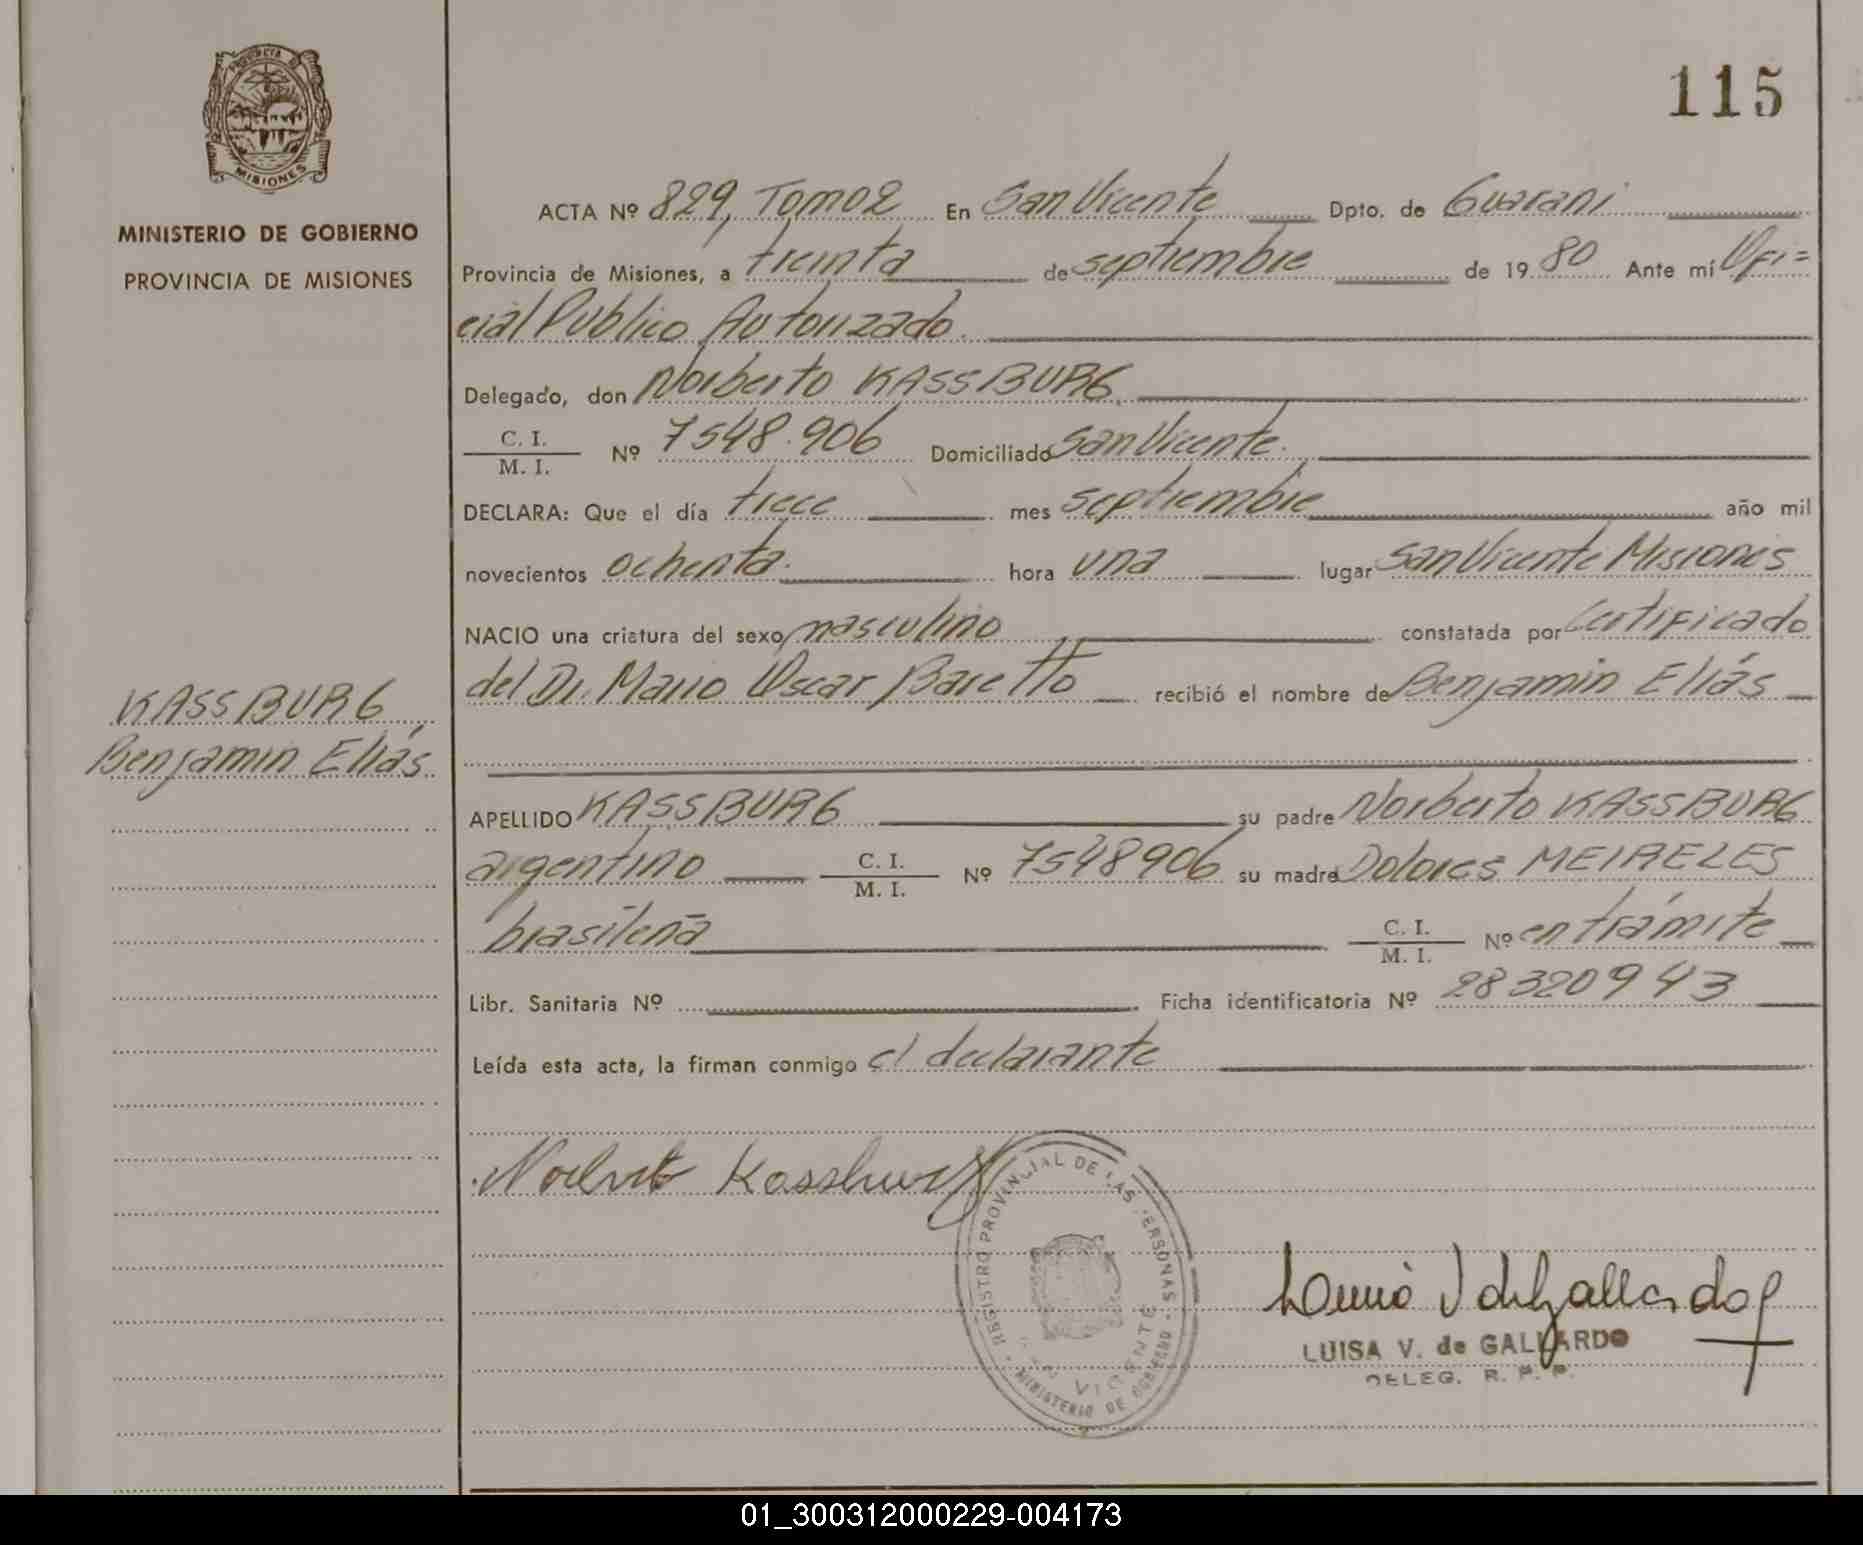 115
PROVINCIA DE
MISIONES
MINISTERIO DE GOBIERNO
PROVINCIA DE MISIONES
ACTA Nº 829, Tomo 2 En San Vicente Dpto. de Guaraní
Provincia de Misiones, a treinta de septiembre de 1980 Ante mí Ofi=
cial Público Autorizado.
Delegado, don Norberto KASSBURG
C. I. / M. I. Nº 7548.906 Domiciliado San Vicente.
DECLARA: Que el día trece mes septiembre año mil
novecientos ochenta. hora una lugar San Vicente Misiones
NACIO una criatura del sexo masculino constatada por Certificado
del Dr. Mario Oscar Baretto recibió el nombre de Benjamin Eliás
KASSBURG
Benjamin Eliás
APELLIDO KASSBURG su padre Norberto KASSBURG
argentino C. I. / M. I. Nº 7548906 su madre Dolores MEIRELES
brasileña C. I. / M. I. Nº en trámite
Libr. Sanitaria Nº Ficha identificatoria Nº 28320943
Leída esta acta, la firman conmigo el declarante
Norberto Kassburg
REGISTRO PROVINCIAL DE LAS PERSONAS
MINISTERIO DE GOBIERNO
SAN VICENTE
Luisa V de Gallardo
LUISA V. de GALLARDO
DELEG. R. P. P.
01_300312000229-004173